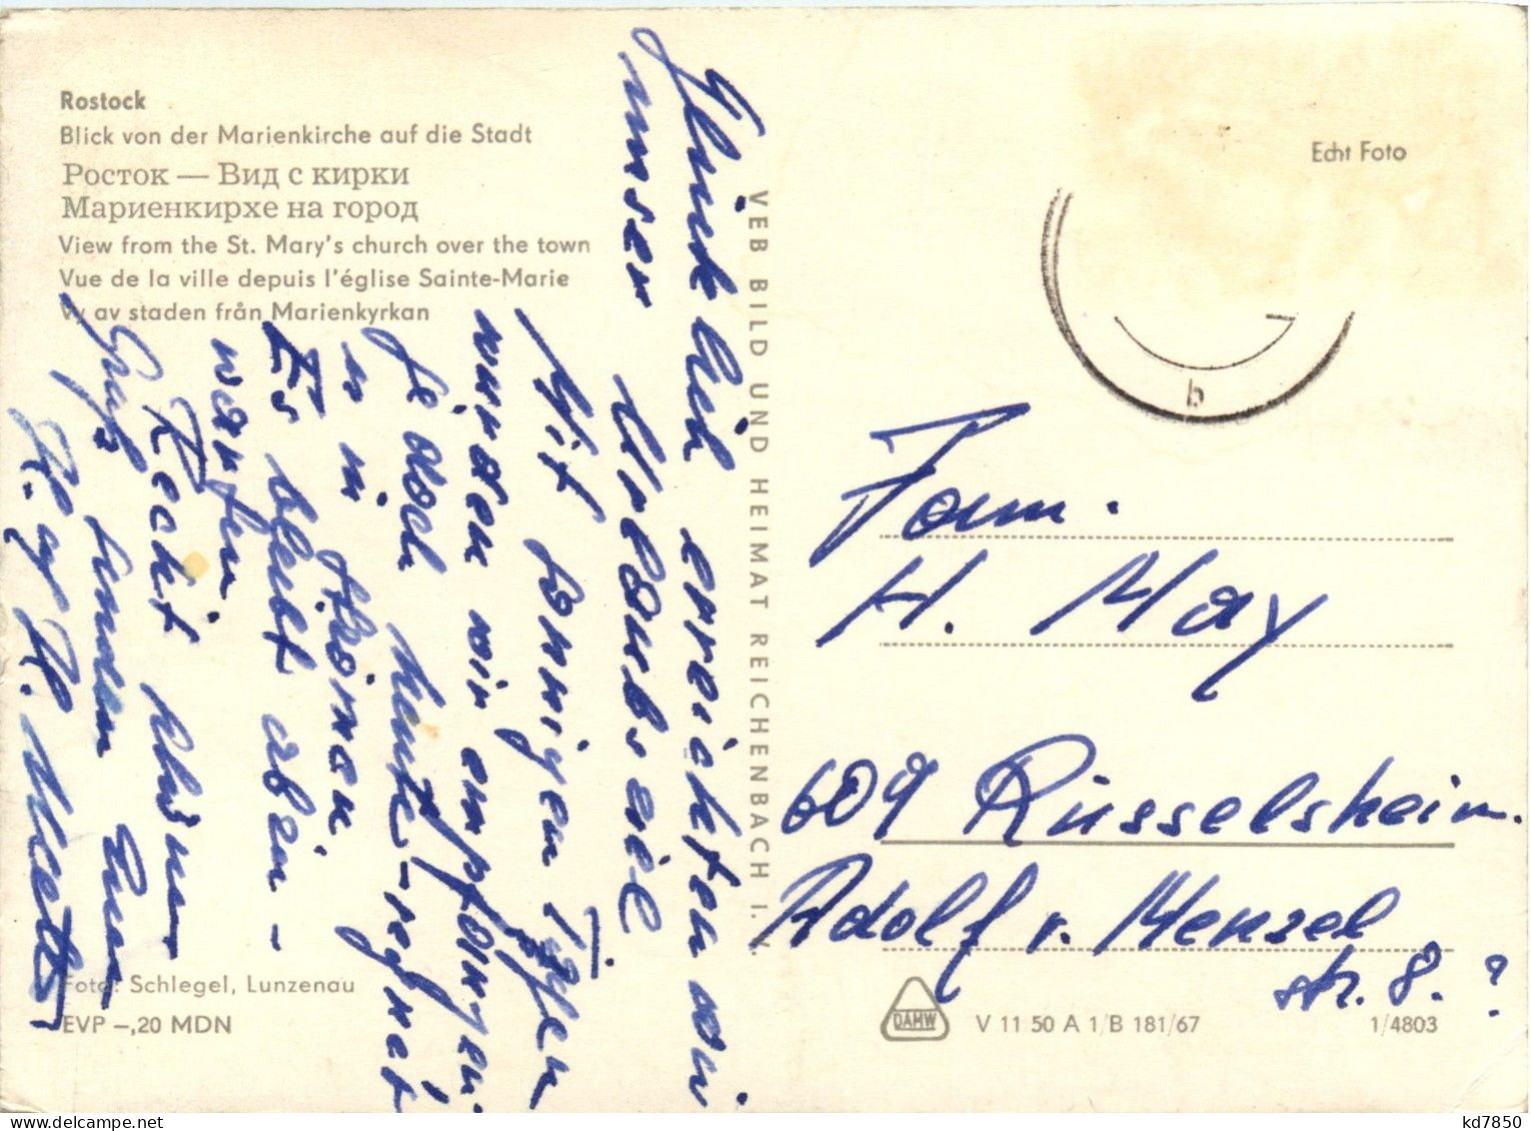 Rostock
Blick von der Marienkirche auf die Stadt
Росток — Вид с кирки
Мариенкирхе на город
View from the St. Mary's church over the town
Vue de la ville depuis l'église Sainte-Marie
Vy av staden från Marienkyrkan
Glücklich erreichten wir
unser Urlaubsziel
Mit sonnigen
wurden wir empfangen
jedoch heute regnet
u
Es bleibt aber
warten
Recht
Gruß senden Euch
VEB BILD UND HEIMAT REICHENBACH I. V.
Echt Foto
b
Fam.
H. May
609 Rüsselsheim.
Adolf v. Menzel
str. 8. ?
Foto: Schlegel, Lunzenau
EVP –,20 MDN
DAMW
V 11 50 A 1/B 181/67
1/4803
kd7850
www.delcampe.net